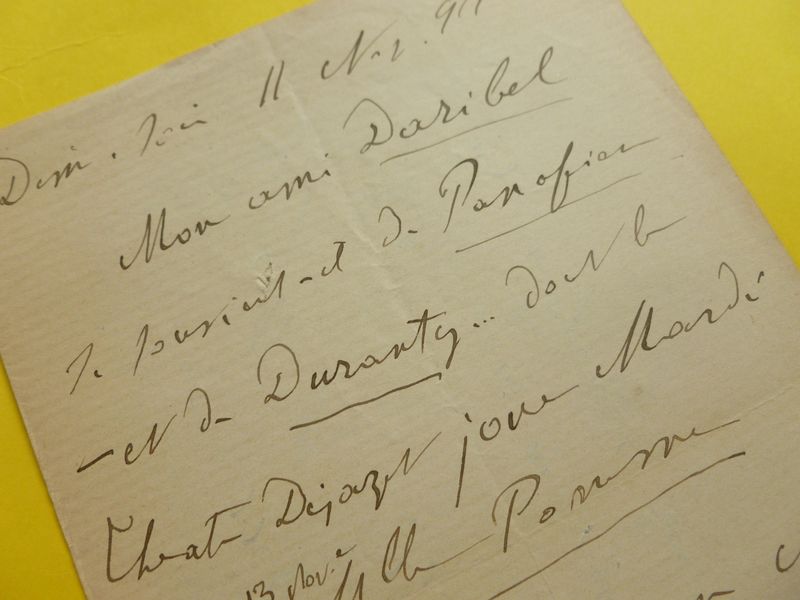 Dim. soir 11 Nov. 94
Mon ami Daribel
Se souvient-il de Panofieu
- et de Duranty... dont le
Théâtre Déjazet joue Mardi
13 Nov. Mlle Pomme